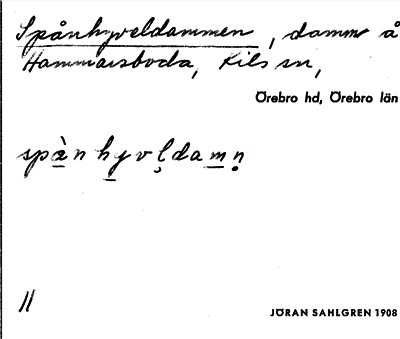 Spånhyveldammen, damm å
Hammarsboda, Kils sn,
Örebro hd, Örebro län
spànhyvl̥damn̥
11
JÖRAN SAHLGREN 1908